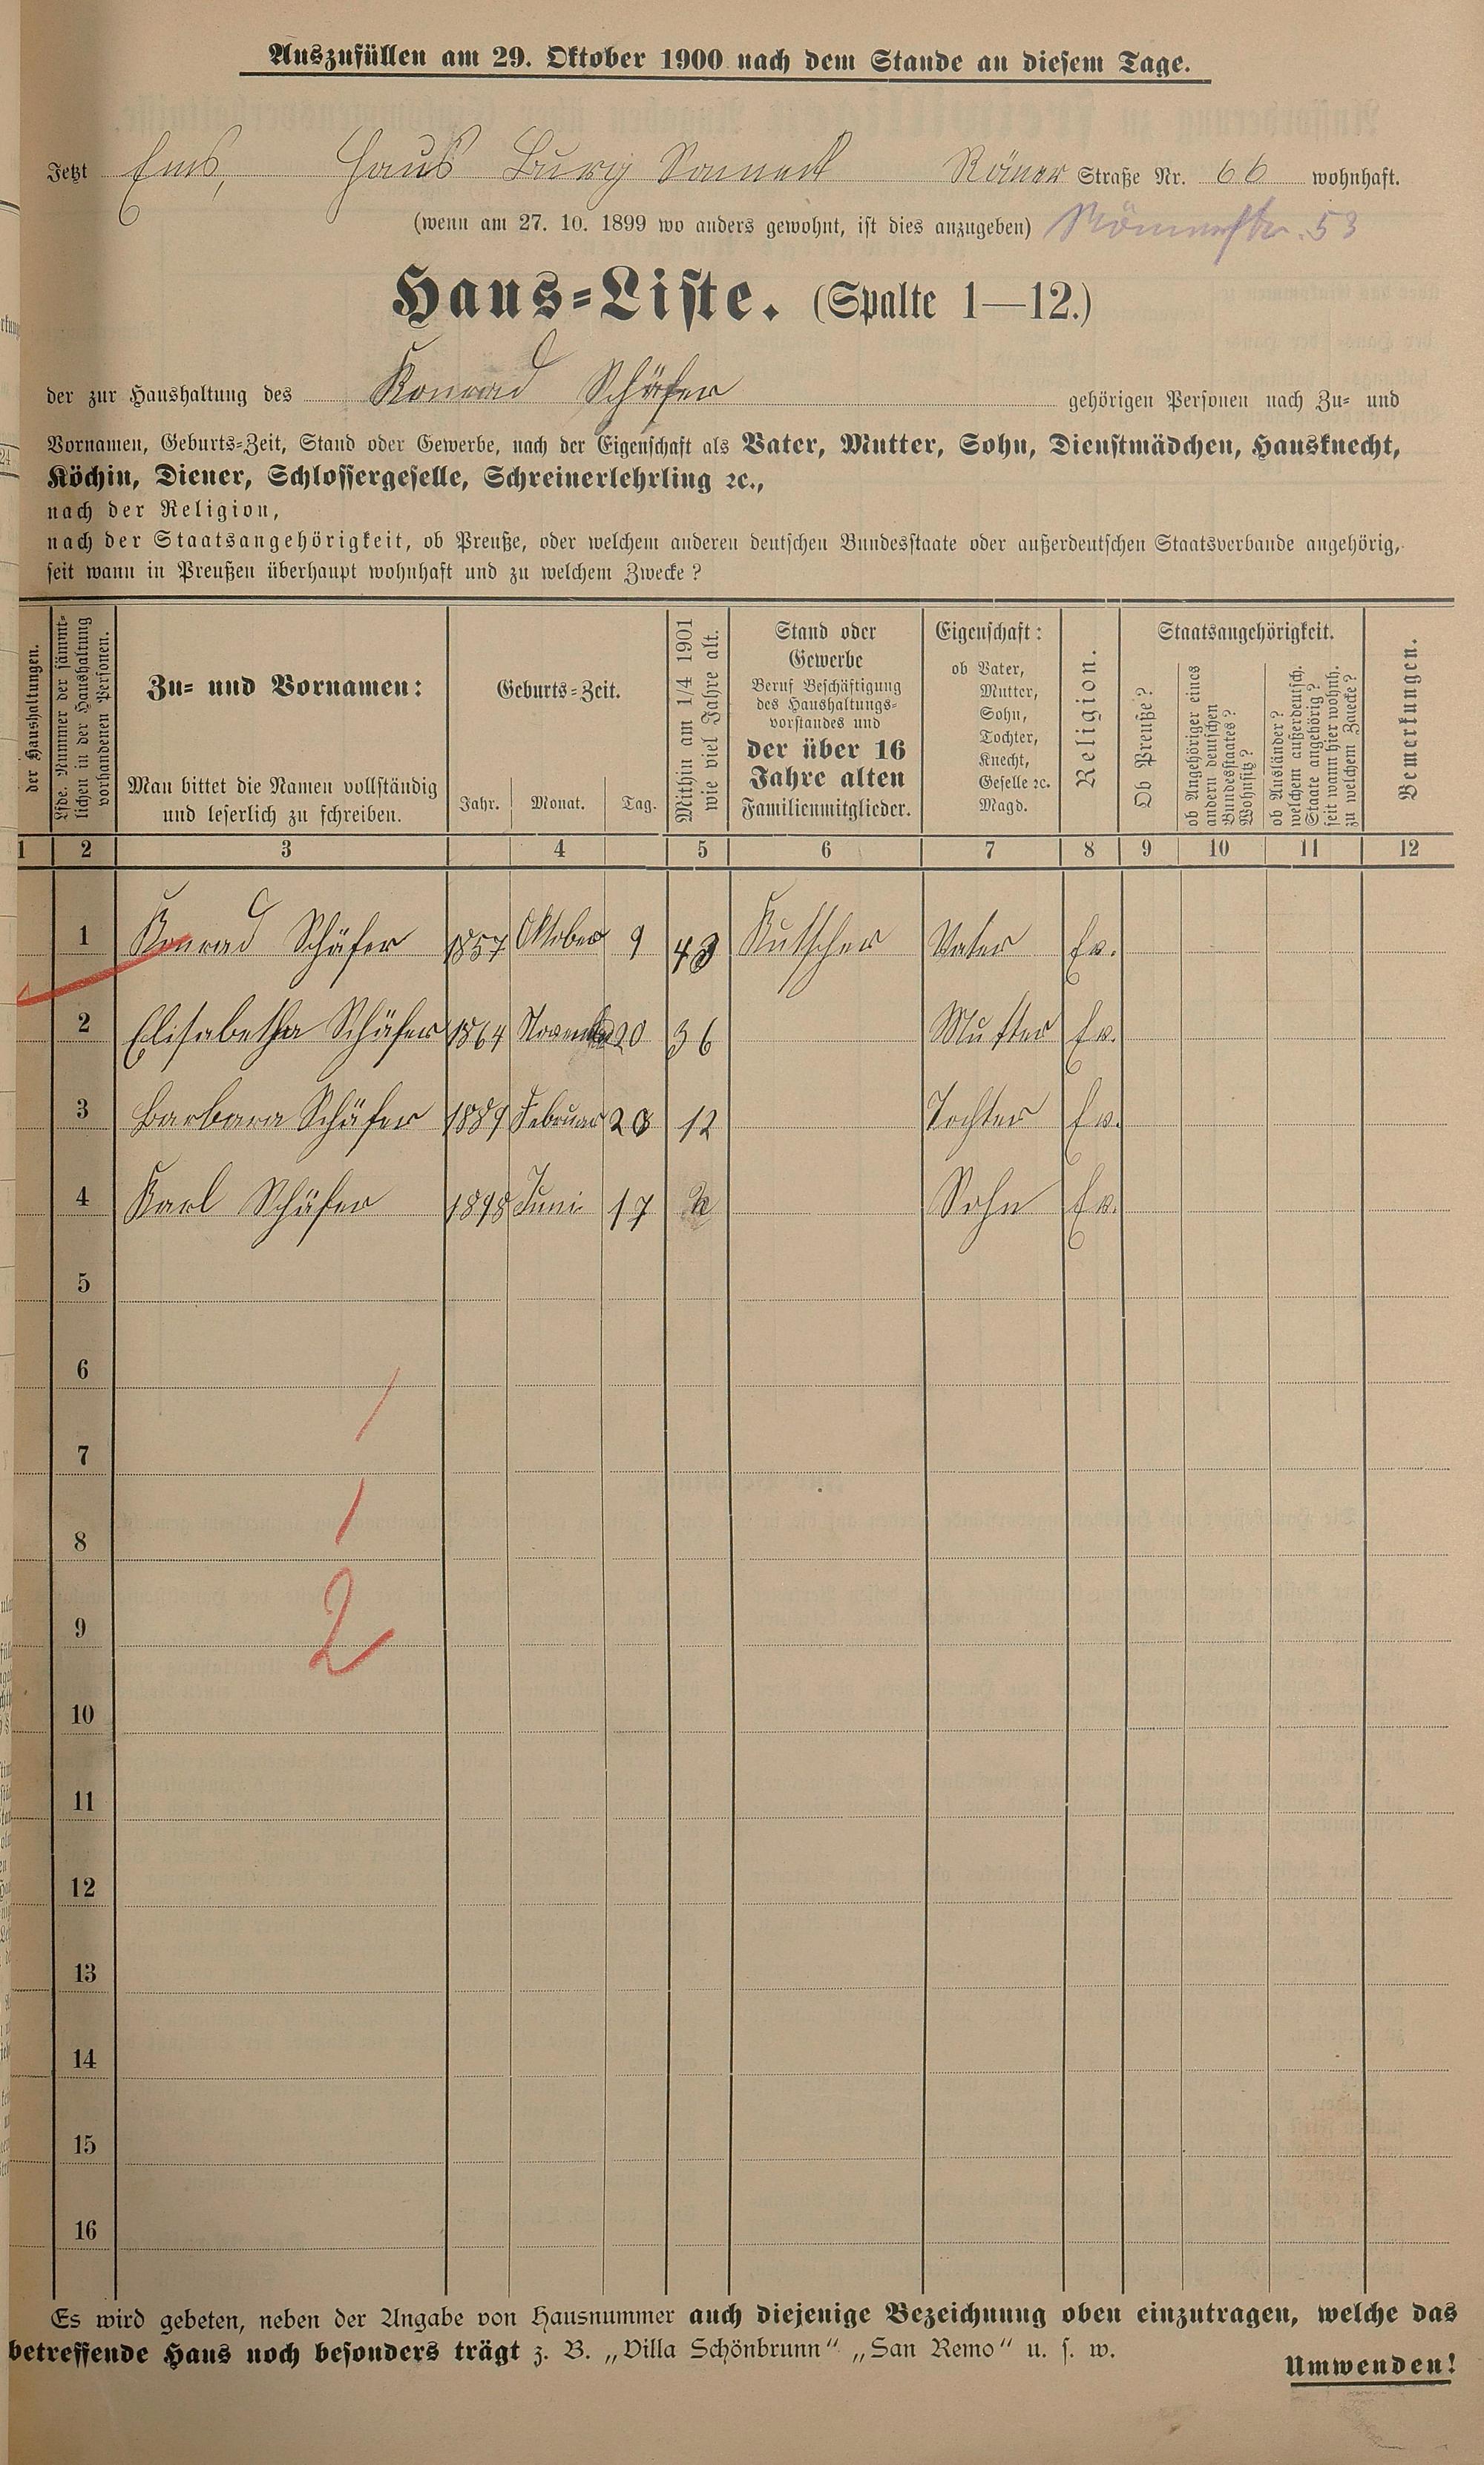 Auszufüllen am 29. Oktober 1900 nach dem Stande an diesem Tage.
Jetzt Ems, Haus Burg Römer Straße Nr. 66 wohnhaft.
(wenn am 27. 10. 1899 wo anders gewohnt, ist dies anzugeben) Römerstr. 53
Haus-Liste. (Spalte 1—12.)
der zur Haushaltung des Konrad Schäfer gehörigen Personen nach Zu- und
Vornamen, Geburts-Zeit, Stand oder Gewerbe, nach der Eigenschaft als Vater, Mutter, Sohn, Dienstmädchen, Hausknecht,
Köchin, Diener, Schlossergeselle, Schreinerlehrling ꝛc.,
nach der Religion,
nach der Staatsangehörigkeit, ob Preuße, oder welchem anderen deutschen Bundesstaate oder außerdeutschen Staatsverbande angehörig,
seit wann in Preußen überhaupt wohnhaft und zu welchem Zwecke?
der Haushaltungen.
Lfde. Nummer der sämmt-
lichen in der Haushaltung
vorhandenen Personen.
Zu- und Vornamen:
Man bittet die Namen vollständig
und leserlich zu schreiben.
Geburts-Zeit.
Jahr. Monat. Tag.
Mithin am 1/4 1901
wie viel Jahre alt.
Stand oder
Gewerbe
Beruf Beschäftigung
des Haushaltungs-
vorstandes und
der über 16
Jahre alten
Familienmitglieder.
Eigenschaft:
ob Vater,
Mutter,
Sohn,
Tochter,
Knecht,
Geselle ꝛc.
Magd.
Religion.
Staatsangehörigkeit.
Ob Preuße?
ob Angehöriger eines
andern deutschen
Bundesstaates?
Wohnsitz?
ob Ausländer?
welchem außerdeutsch.
Staate angehörig?
seit wann hier wohnh.
zu welchem Zwecke?
Bemerkungen.
1 2 3 4 5 6 7 8 9 10 11 12
1 Konrad Schäfer 1857 Oktober 9 43 Kutscher Vater Ev.
2 Elisabetha Schäfer 1864 November 20 36 Mutter Ev.
3 Barbara Schäfer 1889 Februar 20 12 Tochter Ev.
4 Karl Schäfer 1898 Juni 17 2 Sohn Ev.
5
6
1
7
1
8
2
9
10
11
12
13
14
15
16
Es wird gebeten, neben der Angabe von Hausnummer auch diejenige Bezeichnung oben einzutragen, welche das
betreffende Haus noch besonders trägt z. B. „Villa Schönbrunn“ „San Remo“ u. s. w.
Umwenden!